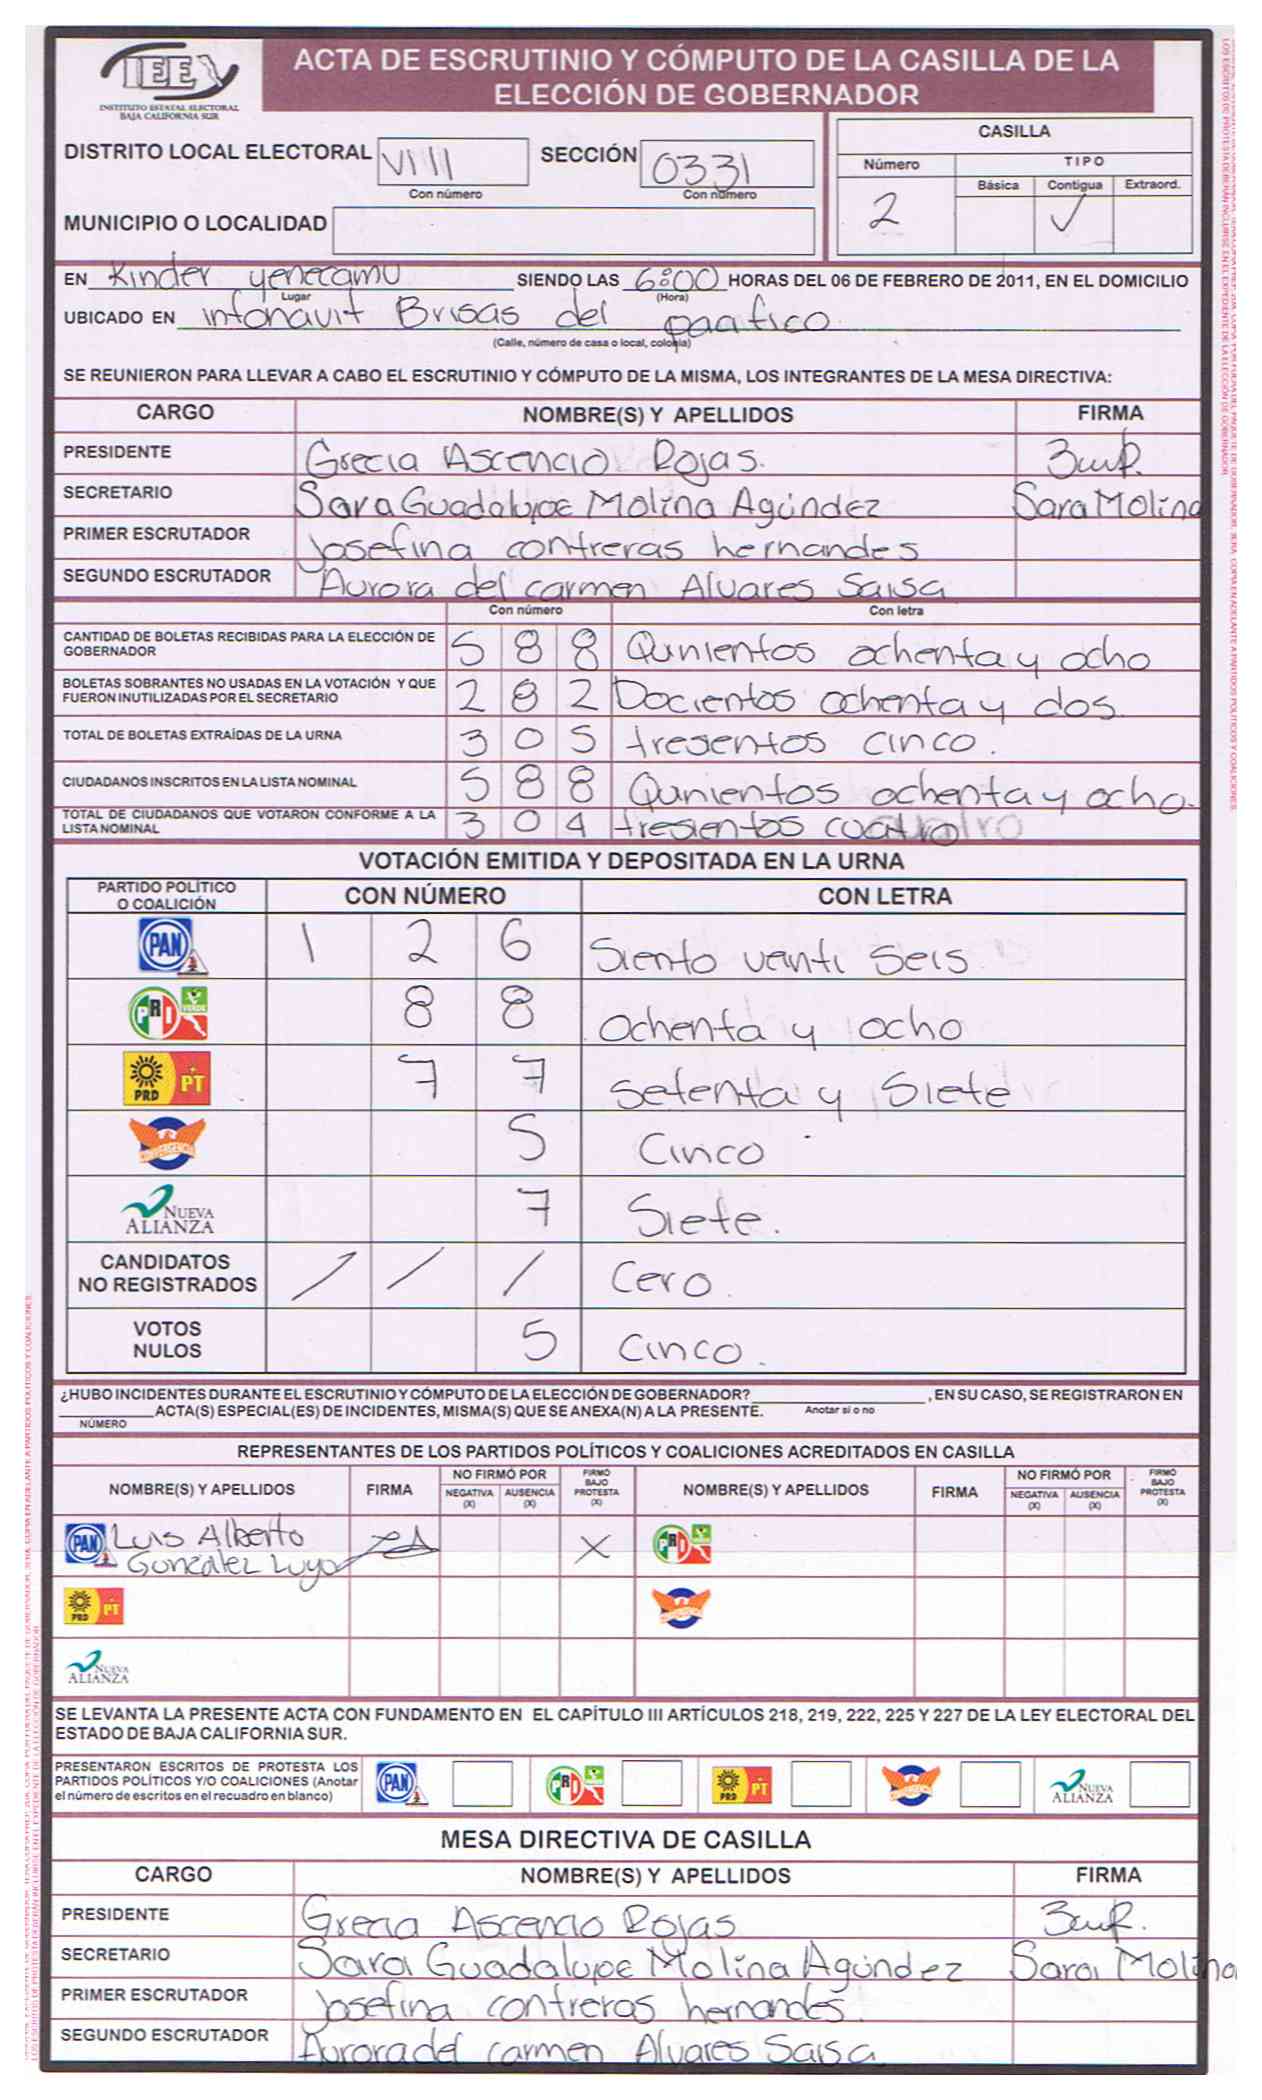 IEE
INSTITUTO ESTATAL ELECTORAL
BAJA CALIFORNIA SUR
ACTA DE ESCRUTINIO Y CÓMPUTO DE LA CASILLA DE LA
ELECCIÓN DE GOBERNADOR
DISTRITO LOCAL ELECTORAL VIII SECCIÓN 0331
Con número Con número
MUNICIPIO O LOCALIDAD
CASILLA
Número TIPO
Básica Contigua Extraord.
2 ✓
EN Kinder yenecamu SIENDO LAS 6:00 HORAS DEL 06 DE FEBRERO DE 2011, EN EL DOMICILIO
Lugar (Hora)
UBICADO EN infonavit Brisas del pacifico
(Calle, número de casa o local, colonia)
SE REUNIERON PARA LLEVAR A CABO EL ESCRUTINIO Y CÓMPUTO DE LA MISMA, LOS INTEGRANTES DE LA MESA DIRECTIVA:
CARGO NOMBRE(S) Y APELLIDOS FIRMA
PRESIDENTE Grecia Ascencio Rojas.
SECRETARIO Sara Guadalupe Molina Agúndez Sara Molina
PRIMER ESCRUTADOR Josefina contreras hernandes
SEGUNDO ESCRUTADOR Aurora del carmen Alvares Saisa
Con número Con letra
CANTIDAD DE BOLETAS RECIBIDAS PARA LA ELECCIÓN DE
GOBERNADOR 5 8 8 Qunientos ochenta y ocho
BOLETAS SOBRANTES NO USADAS EN LA VOTACIÓN Y QUE
FUERON INUTILIZADAS POR EL SECRETARIO 2 8 2 Docientos ochenta y dos.
TOTAL DE BOLETAS EXTRAÍDAS DE LA URNA 3 0 5 tresentos cinco.
CIUDADANOS INSCRITOS EN LA LISTA NOMINAL 5 8 8 Qunientos ochenta y ocho.
TOTAL DE CIUDADANOS QUE VOTARON CONFORME A LA
LISTA NOMINAL 3 0 4 tresientos cuatro
VOTACIÓN EMITIDA Y DEPOSITADA EN LA URNA
PARTIDO POLÍTICO
O COALICIÓN CON NÚMERO CON LETRA
PAN 1 2 6 Siento venti Seis.
PRI VERDE 8 8 ochenta y ocho
PRD PT 7 7 setenta y Siete
CONVERGENCIA 5 Cinco
NUEVA
ALIANZA 7 Siete.
CANDIDATOS
NO REGISTRADOS / / / Cero.
VOTOS
NULOS 5 Cinco.
¿HUBO INCIDENTES DURANTE EL ESCRUTINIO Y CÓMPUTO DE LA ELECCIÓN DE GOBERNADOR? , EN SU CASO, SE REGISTRARON EN
ACTA(S) ESPECIAL(ES) DE INCIDENTES, MISMA(S) QUE SE ANEXA(N) A LA PRESENTE. Anotar si o no
NÚMERO
REPRESENTANTES DE LOS PARTIDOS POLÍTICOS Y COALICIONES ACREDITADOS EN CASILLA
NOMBRE(S) Y APELLIDOS FIRMA NO FIRMÓ POR NEGATIVA (X) AUSENCIA (X) FIRMÓ BAJO PROTESTA (X) NOMBRE(S) Y APELLIDOS FIRMA NO FIRMÓ POR NEGATIVA (X) AUSENCIA (X) FIRMÓ BAJO PROTESTA (X)
PAN Luis Alberto X PRI VERDE
Gonzalez Luyo
PRD PT
NUEVA
ALIANZA
SE LEVANTA LA PRESENTE ACTA CON FUNDAMENTO EN EL CAPÍTULO III ARTÍCULOS 218, 219, 222, 225 Y 227 DE LA LEY ELECTORAL DEL
ESTADO DE BAJA CALIFORNIA SUR.
PRESENTARON ESCRITOS DE PROTESTA LOS
PARTIDOS POLÍTICOS Y/O COALICIONES (Anotar
el número de escritos en el recuadro en blanco) PAN PRI VERDE PRD PT NUEVA ALIANZA
MESA DIRECTIVA DE CASILLA
CARGO NOMBRE(S) Y APELLIDOS FIRMA
PRESIDENTE Grecia Ascencio Rojas
SECRETARIO Sara Guadalupe Molina Agúndez Sara Molina
PRIMER ESCRUTADOR Josefina contreras hernandes.
SEGUNDO ESCRUTADOR Aurora del carmen Alvares Saisa